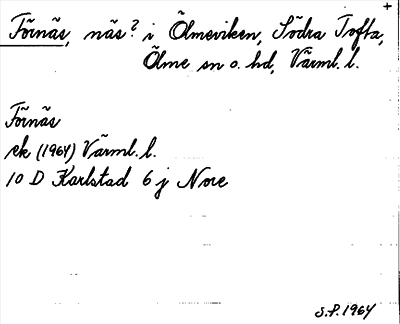 Förnäs, näs? i Ölmeviken, Södra Tofta,
Ölme sn o. hd, Värml. l.
Förnäs
ek (1964) Värml. l.
10 D Karlstad 6 j Nore
S.P. 1964